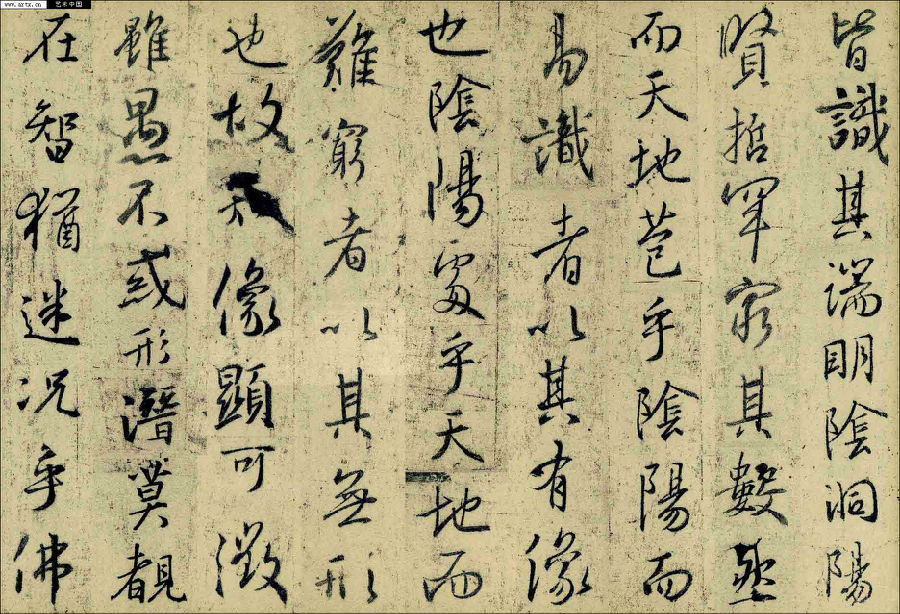 www.artx.cn 艺术中国
皆識其端明陰洞陽
賢哲罕窮其數然
而天地苞乎陰陽而
易識者以其有像
也陰陽處乎天地而
難窮者以其無形
也故知像顯可徵
雖愚不惑形潛莫覩
在智猶迷況乎佛